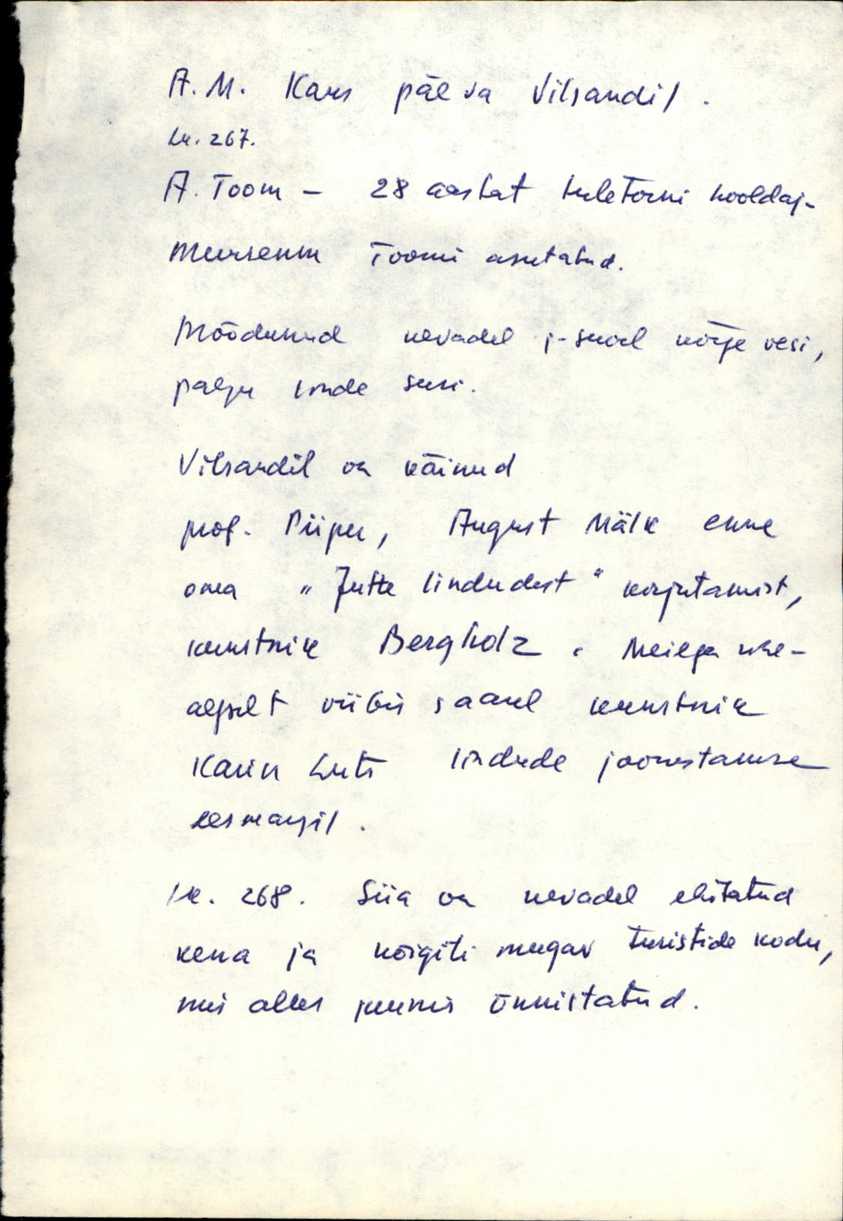 A. M. Kaks päeva Vilsandil.
Lk. 267.
A. Toom – 28 aastat tuletorni hooldaj-
Muuseum Toomi asutatud.
Möödunud kevadel j-suvel kõrge vesi,
palju linde suri.
Vilsandil on käinud
prof. Piiper, August Mälk enne
oma "Jutte lindudest" kirjutamist,
kunstnik Bergholz. Meiega ühe-
aegselt viibis saarel kunstnik
Karin Luts lindude joonistamise
eesmärgil.
Lk. 268. Siia on kevadel ehitatud
kena ja kõigiti mugav turistide kodu,
mis alles juunis õnnistatud.